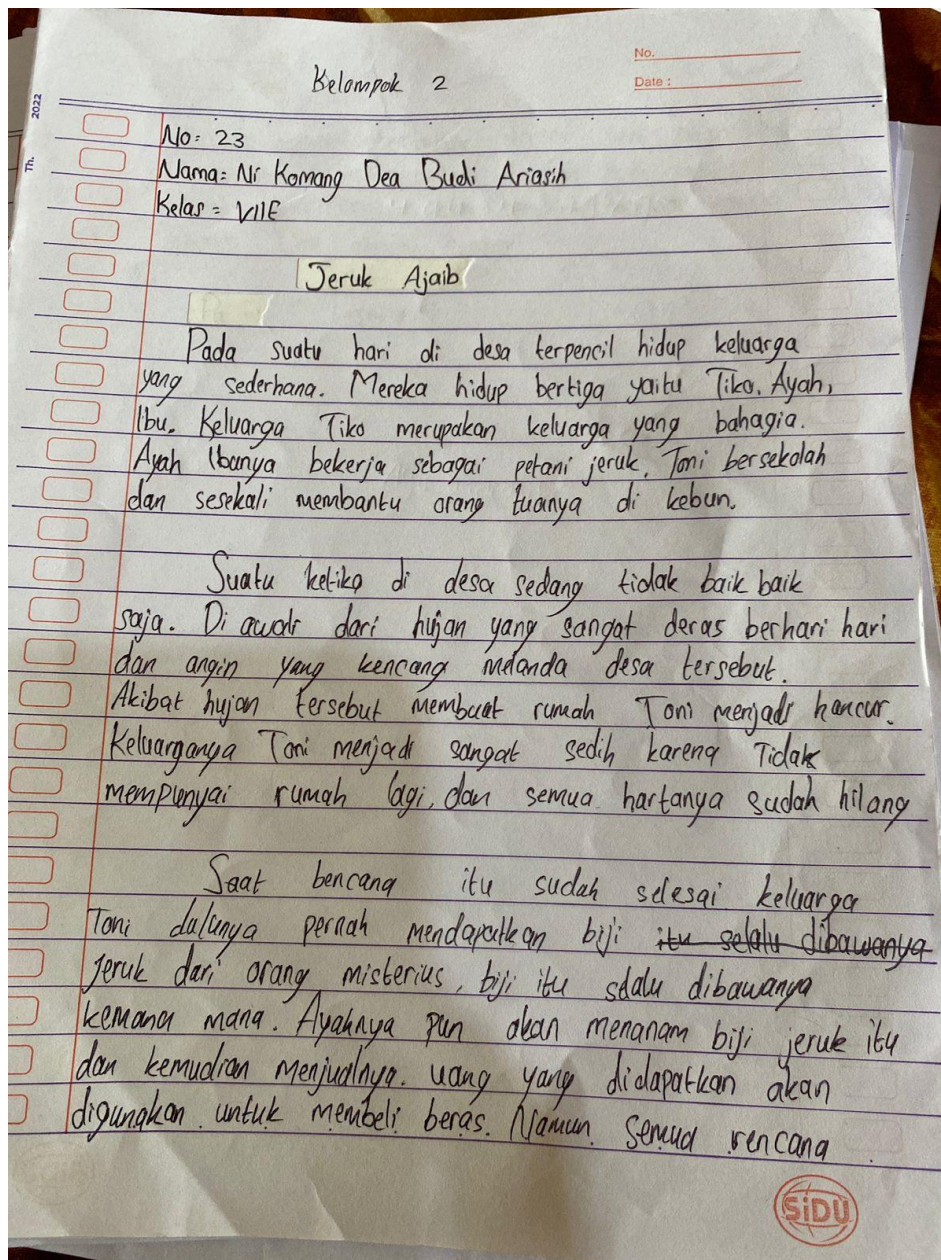 No.
Date :
Kelompok 2
Th. 2022
No: 23
Nama: Ni Komang Dea Budi Ariasih
Kelas = VIIE
Jeruk Ajaib
Pada suatu hari di desa terpencil hidup keluarga
yang sederhana. Mereka hidup bertiga yaitu Tiko, Ayah,
Ibu. Keluarga Tiko merupakan keluarga yang bahagia.
Ayah Ibunya bekerja sebagai petani jeruk, Toni bersekolah
dan sesekali membantu orang tuanya di kebun.
Suatu ketika di desa sedang tidak baik baik
saja. Di awali dari hujan yang sangat deras berhari hari
dan angin yang kencang melanda desa tersebut.
Akibat hujan tersebut membuat rumah Toni menjadi hancur.
Keluarganya Toni menjadi sangat sedih karena Tidak
mempunyai rumah lagi, dan semua hartanya sudah hilang
Saat bencana itu sudah selesai keluarga
Toni dulunya pernah mendapatkan biji itu selalu dibawanya
jeruk dari orang misterius, biji itu selalu dibawanya
kemana mana. Ayahnya pun akan menanam biji jeruk itu
dan kemudian menjualnya. uang yang didapatkan akan
digunakan untuk membeli beras. Namun semua rencana
SiDU